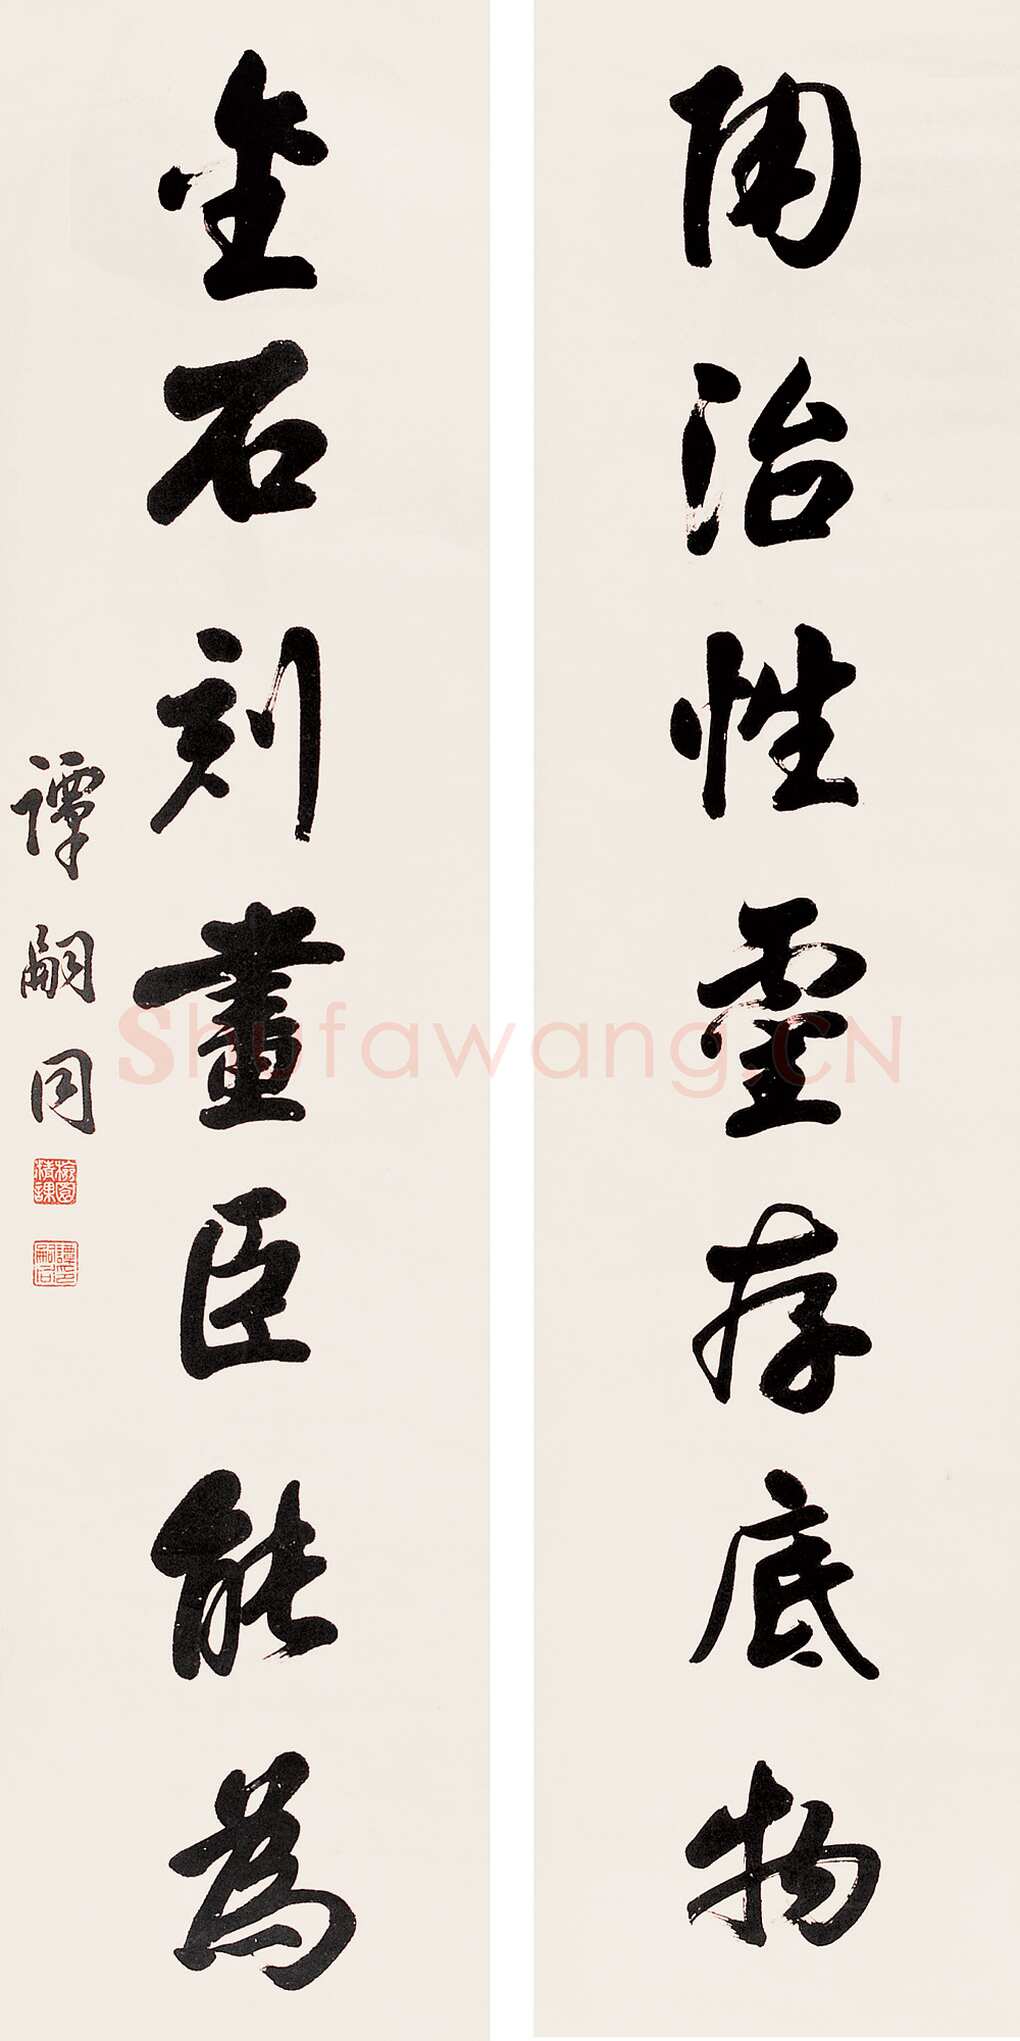 陶冶性靈存底物
金石刻畫臣能為
譚嗣同
Shufawang.CN